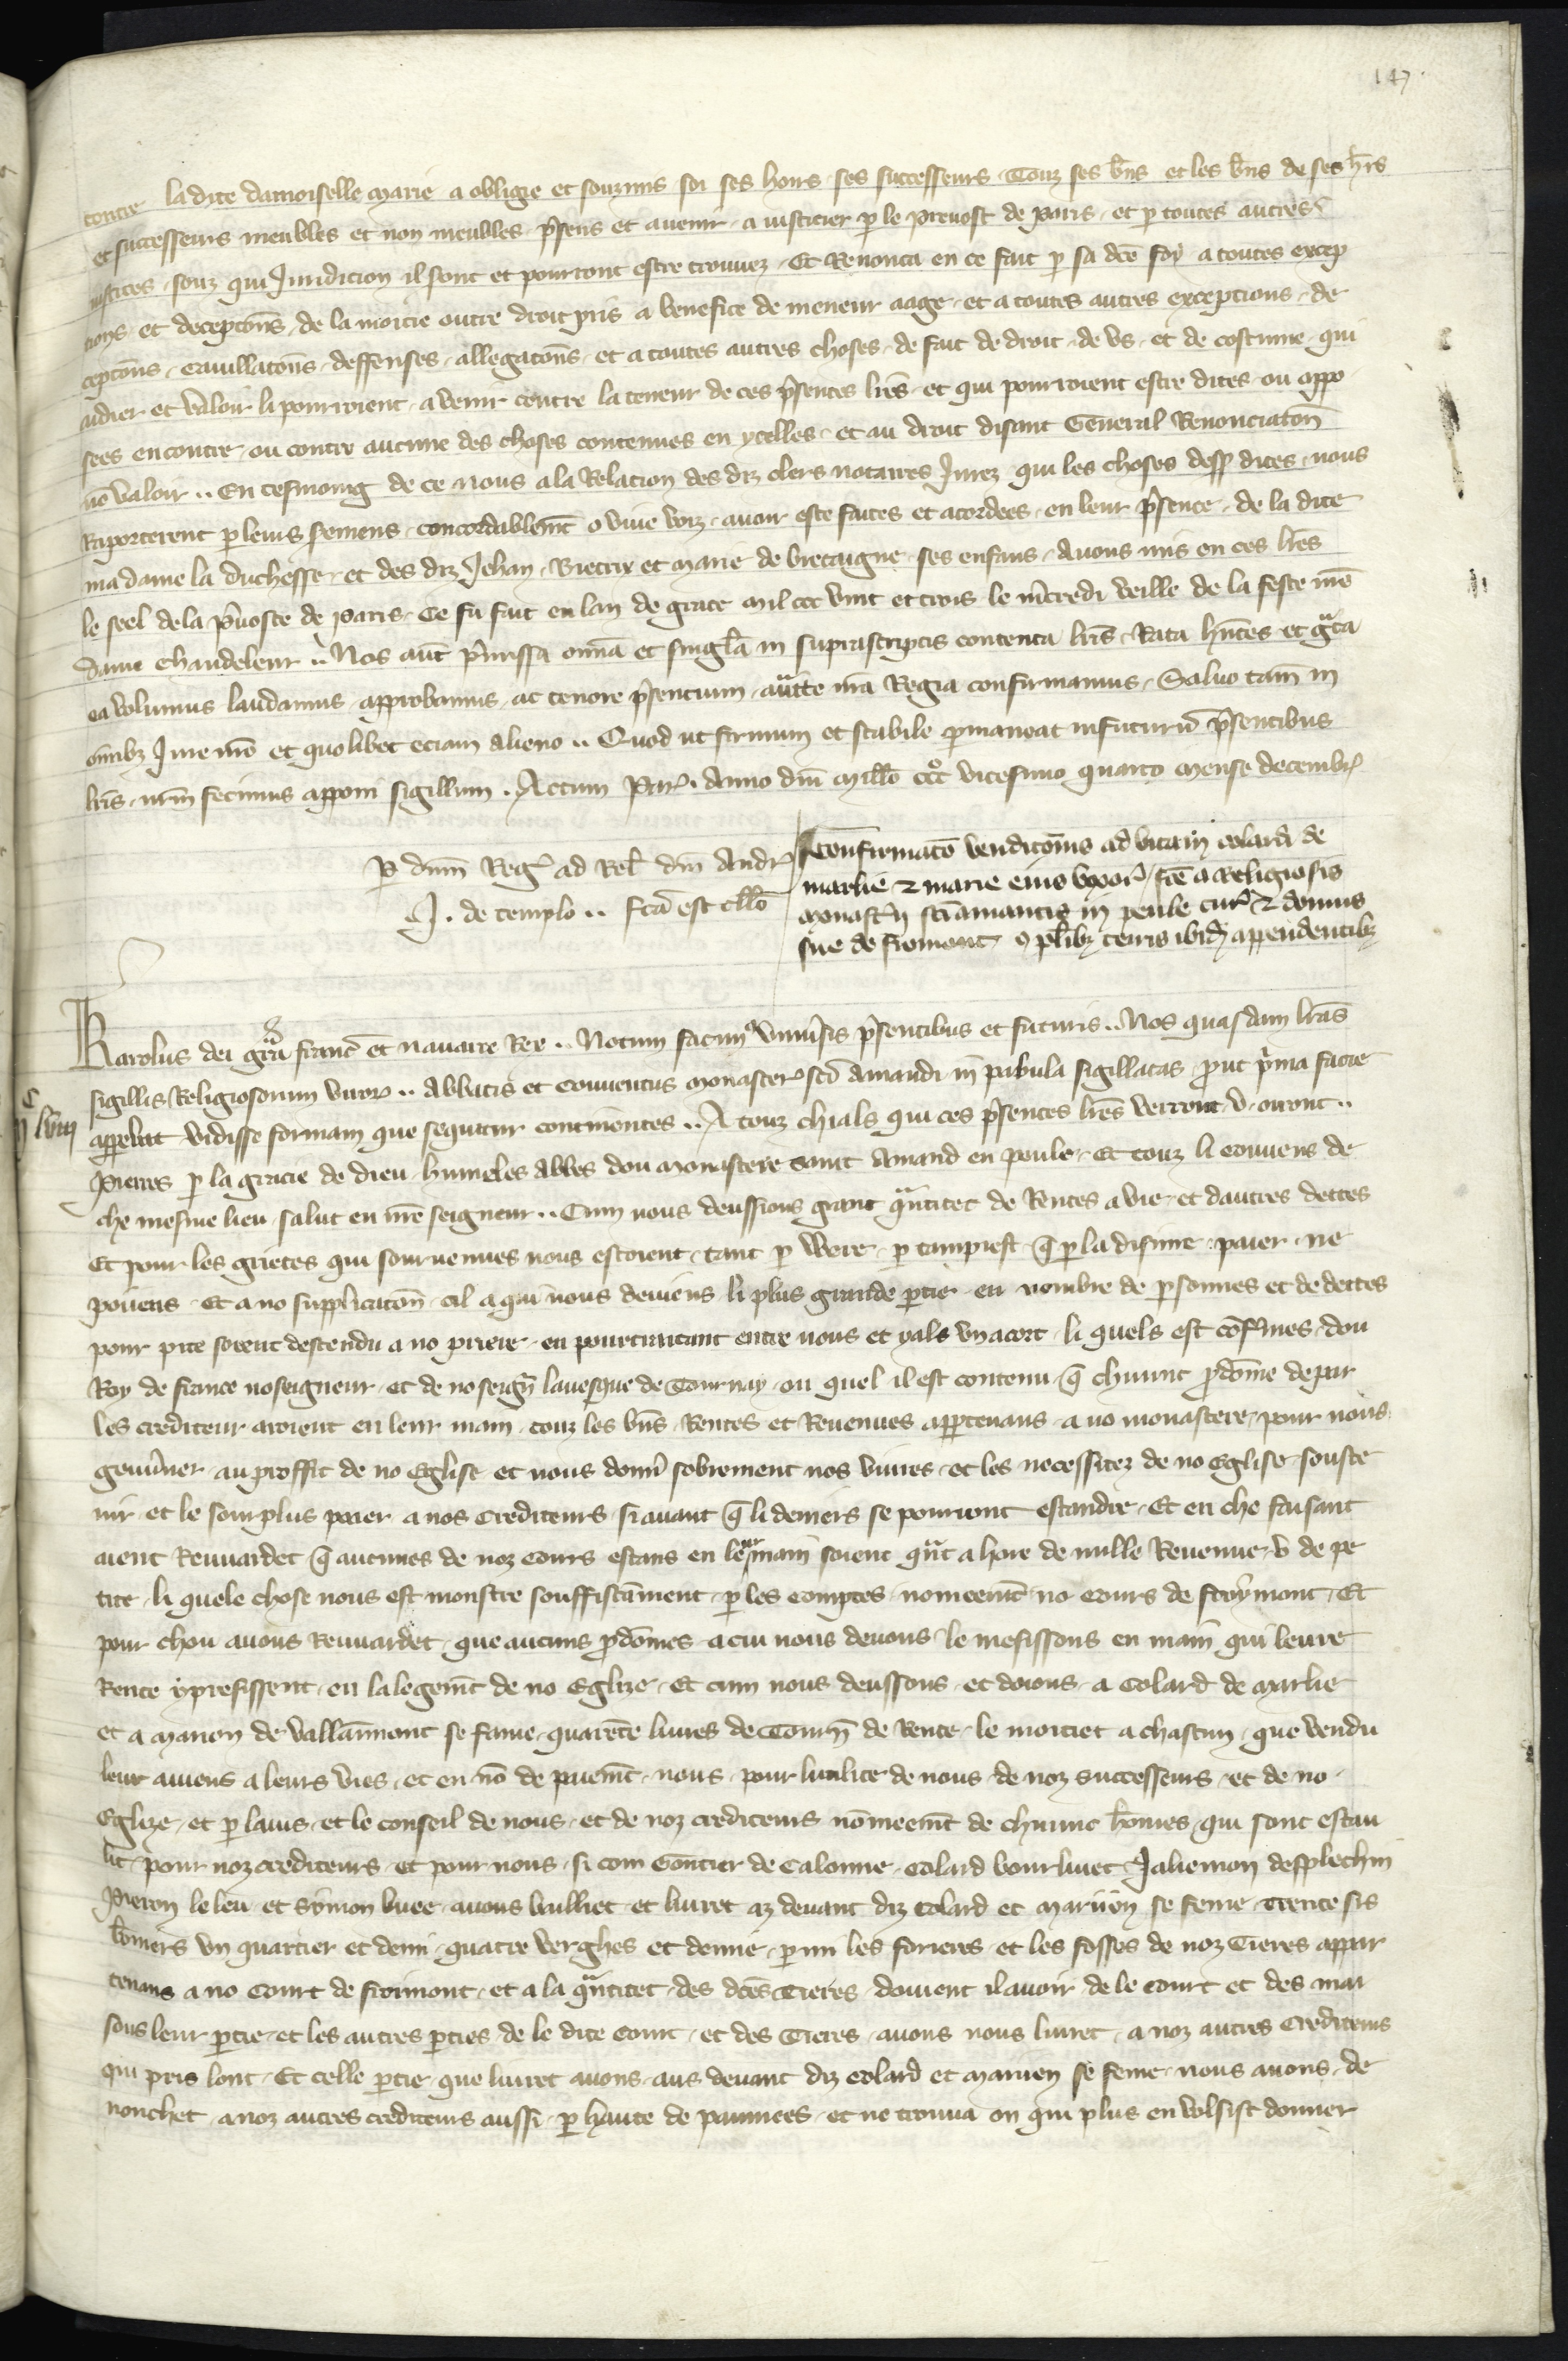 147
contre la dite damoiselle marie a obligie et souzmis soi ses hoirs ses successeurs Touz ses b̃ns et les b̃ns de ses h̃rs
et successeurs meubles et non meubles p̃sens et avenir a iusticier p le prevost de Paris et p toutes autres
iustices souz qui Juridicion il sont et pourront estre trouvez Et Renonca en ce fait p sa dc̃e foy a toutes excep
tions et decepcõns de la moitie outre droit pris a benefice de meneur aage et a toutes autres exceptions de
cepcõns cauillatõns deffenses allegatõns et a toutes autres choses de fait de droit de vs et de costume qui
aidier et valoir li pourroient a venir contre la teneur de ces p̃sentes lr̃es et qui pourroient estre dites ou appo
sees encontre ou contre aucune des choses contenues en ycelles et au droit disant General Renonciatõn
nõ valoir .. En tesmoing de ce nous a la Relacion des diz clers notaires Jurez qui les choses dess9 dites nous
Raporterent p leurs semens concordablem̃t o vive voiz avoir este faites et acordees en leur p̃sence de la dite
ma dame la duchesse et des diz Jehan Bietrix et Marie de bretaigne ses enfans Avons mis en ces lr̃es
le seel de la p̃voste de Paris Ce fu fait en lan de grace mil ccc vint et trois le m̃credi veille de la feste nr̃e
dame chandeleur .. Nos aut̃ p̃missa om̃ia et singl̃a in suprascriptis contenta lr̃is Rata hñtes et gr̃ata
ea volumus laudamus approbamus ac tenore p̃sentium auct̃te nr̃a Regia confirmamus Salvo tam̃ in
om̃ibz Jure nr̃o et quolibet eciam alieno .. Quod ut firmum et stabile pmaneat in futurũ p̃sentibus
lr̃is nr̃m fecimus apponi sigillum . Actum Par̃ . Anno dnĩ Mill̃o ccc̊ vicesimo quarto mense decembr̃
P dnm̃ Reg̃ ad Rel̃ dnĩ Andr̃
J. de templo .. fc̃a est coll̃o
Confirmacõ vendicõnis ad vitam colardi de
marlie & marie eius vxor̃ fc̃e a Religiosis
monast̃ii sc̃i amantis in peule cur̃ & domus
sue de fromont 9 plĩbz terris ibid̃ appendentibz
Karolus dei gr̃a franc̃ et nauarre Rex .. Notum facim9 Uniṽsis p̃sentibus et futuris .. Nos quasdam lr̃as
sigillis Religiosorum viror̃ .. abbatis et conventus monaster̃ sc̃i Amandi in pabula sigillatas prout p̃ma facie
apparebat vidisse formam que sequitur continentes .. A touz chials qui ces p̃sentes lr̃es verront v oiront ..
Pierres p la gracie de dieu humeles abbes dou monastere saint Amand en peule Et touz li convens de
che mesme lieu salut en nr̃e seigneur .. Cum nous deussions grant q̃ntitet de Rentes a vie et dautres dettes
Et pour les grietes qui sourvenues nous estoient tant p were p tampiest q̃ p la disime paier ne
poviens Et a no supplicatõn cil a qui nous deviens li plus grande ptie en nombre de psonnes et de dettes
pour pite soient descendu a no priere en pourtraitant entre nous et yals vn acort li quels est cõf̃mes dou
Roy de france no seigneur et de no seign̄ lavesque de Tournay ou quel il est contenu q̃ chiunc p̃dõme depar
les crediteur aroient en leur main touz les bñs Rentes et Revenues apptenans a no monastere pour nous
gouṽner au proffit de no Eglise et nous donn̄ sobrement nos vivres et les necessitez de no Eglise souste
nir et le sourplus paier a nos Crediteurs si avant q̃ li deniers se pourront estandre Et en che faisant
aient Rewardet q̃ aucunes de noz Cours estans en leur main soient q̃nt a hore de nulle Revenue v de pe
tite li quele chose nous est monstre souffisãment p les comptes nomeem̃t no Cours de froymont Et
pour chou avons Rewardet que aucuns p̃dõmes a cui nous devons le mesissons en main qui leure
Rente y presissent en lalegem̃t de no Eglize Et cum nous deussons et doions a Colard de Marlie
et a Marien de vallãmont se fame quarẽte livres de Tourñ de Rente le moitiet a chascun que vendu
leur aviens a leurs vies et en nõ de paiem̃t nous pour lutilite de nous de noz successeurs et de no
Eglize et p lavis et le conseil de nous et de noz crediteurs nõmeem̃t de chiunc h̃omes qui sont estau
lit pour noz crediteurs et pour nous si com Gontier de Calonne Colard bourlivet Jakemon desplechin
Pieron le leu et Symon buee avons bailliet et livret az devant diz Colard et Marien se feme Trente sis
bõniers vn quartier et demi quatre verghes et demie parmi les forieres et les fosses de noz Tieres appar
tenans a no Court de froimont et a la q̃ntitet des dc̃es Tieres doivent il avoir de le court et des mai
sons leur ptie et les autres pties de le dite Court et des Tieres avons nous livret a noz autres Crediteurs
qui pris lont Et celle ptie que livret avons aus devant diz Colard et Marien se feme nous avons de
nonchet a noz autres crediteurs aussi p haute de paumees et ne trouva on qui plus en volsist donner